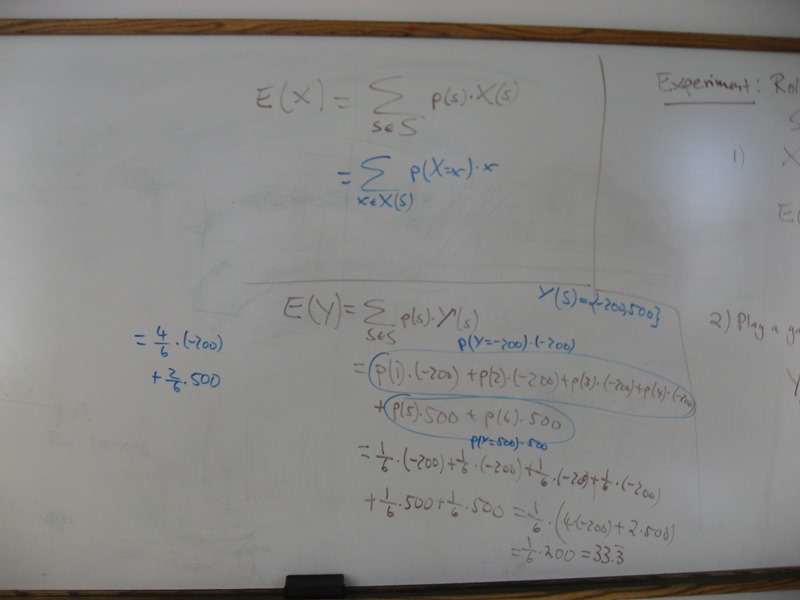 E(X) = ∑ p(s)·X(s)
s∈S
= ∑ p(X=x)·x
x∈X(S)
Experiment: Rol
S
1) X
E(
Y(S)={-200,500}
E(Y)= ∑ p(s)·Y(s)
s∈S
p(Y=-200)·(-200)
= p(1)·(-200) + p(2)·(-200) + p(3)·(-200) + p(4)·(-200
+ p(5)·500 + p(6)·500
p(Y=500)·500
= 1/6·(-200) + 1/6·(-200) + 1/6·(-20) + 1/6·(-200)
+ 1/6·500 + 1/6·500 = 1/6·(4·(-200) + 2·500)
= 1/6·200 = 33.3̅
= 4/6·(-200)
+ 2/6·500
2) Play a ga
Y